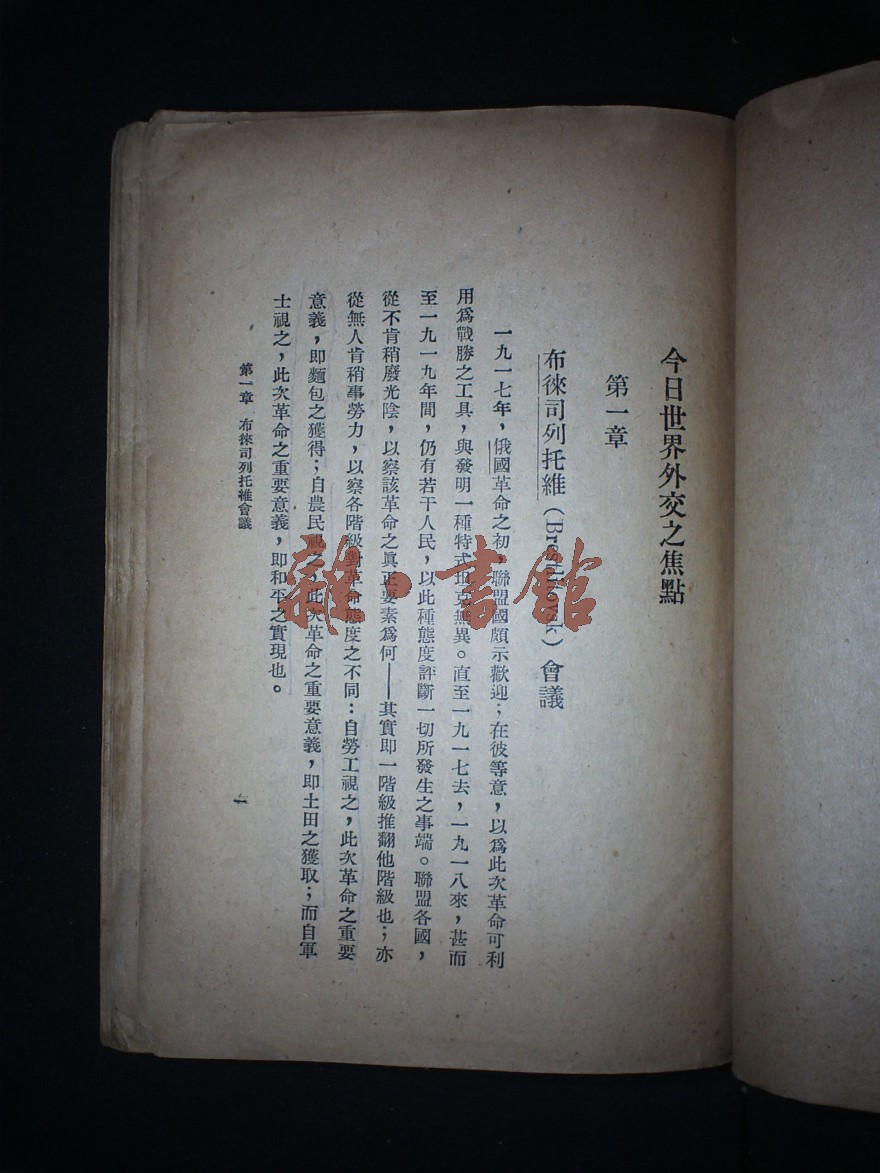 今日世界外交之焦點
第一章
布徠司列托維（Brest-Litovsk）會議
一九一七年，俄國革命之初，聯盟國頗示歡迎；在彼等意，以爲此次革命可利
用爲戰勝之工具，與發明一種特式坦克無異。直至一九一七去，一九一八來，甚而
至一九一九年間，仍有若干人民，以此種態度評斷一切所發生之事端。聯盟各國，
從不肯稍廢光陰，以察該革命之眞正要素爲何——其實卽一階級推翻他階級也；亦
從無人肯稍事勞力，以察各階級對革命態度之不同：自勞工視之，此次革命之重要
意義，卽麵包之獲得；自農民視之，此次革命之重要意義，卽土田之獲取；而自軍
士視之，此次革命之重要意義，卽和平之實現也。
第一章　布徠司列托維會議
一
雜·書館